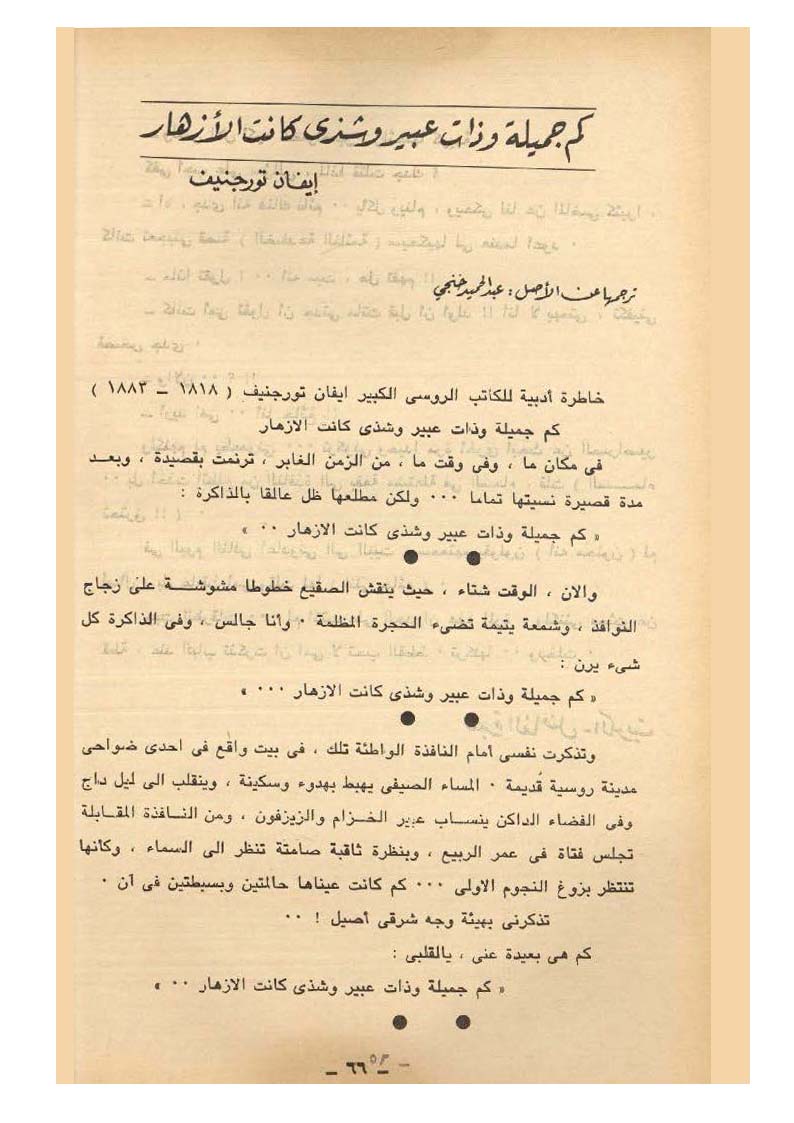 كم جميلة وذات عبير وشذى كانت الأزهار
إيفان تورجنيف
ترجمها عن الأصل : عبدالحميد خنجي
خاطرة أدبية للكاتب الروسى الكبير ايفان تورجنيف ( ١٨١٨ – ١٨٨٣ )
كم جميلة وذات عبير وشذى كانت الازهار
فى مكان ما ، وفى وقت ما ، من الزمن الغابر ، ترنمت بقصيدة ، وبعد
مدة قصيرة نسيتها تماما ٠٠٠ ولكن مطلعها ظل عالقا بالذاكرة :
« كم جميلة وذات عبير وشذى كانت الازهار ٠٠ »
● ●
والان ، الوقت شتاء ، حيث ينقش الصقيع خطوطا مشوشة على زجاج
النوافذ ، وشمعة يتيمة تضىء الحجرة المظلمة ٠ وأنا جالس ، وفى الذاكرة كل
شىء يرن :
« كم جميلة وذات عبير وشذى كانت الازهار ٠٠٠ »
● ●
وتذكرت نفسى أمام النافذة الواطئة تلك ، فى بيت واقع فى احدى ضواحى
مدينة روسية قديمة ٠ المساء الصيفى يهبط بهدوء وسكينة ، وينقلب الى ليل داج
وفى الفضاء الداكن ينساب عبير الخزام والزيزفون ، ومن النافذة المقابلة
تجلس فتاة فى عمر الربيع ، وبنظرة ثاقبة صامتة تنظر الى السماء ، وكانها
تنتظر بزوغ النجوم الاولى ٠٠٠ كم كانت عيناها حالمتين وبسيطتين فى آن ٠
تذكرنى بهيئة وجه شرقى أصيل ! ٠٠
كم هى بعيدة عنى ، يالقلبى :
« كم جميلة وذات عبير وشذى كانت الازهار ٠٠ »
● ●
– ٦٦ –